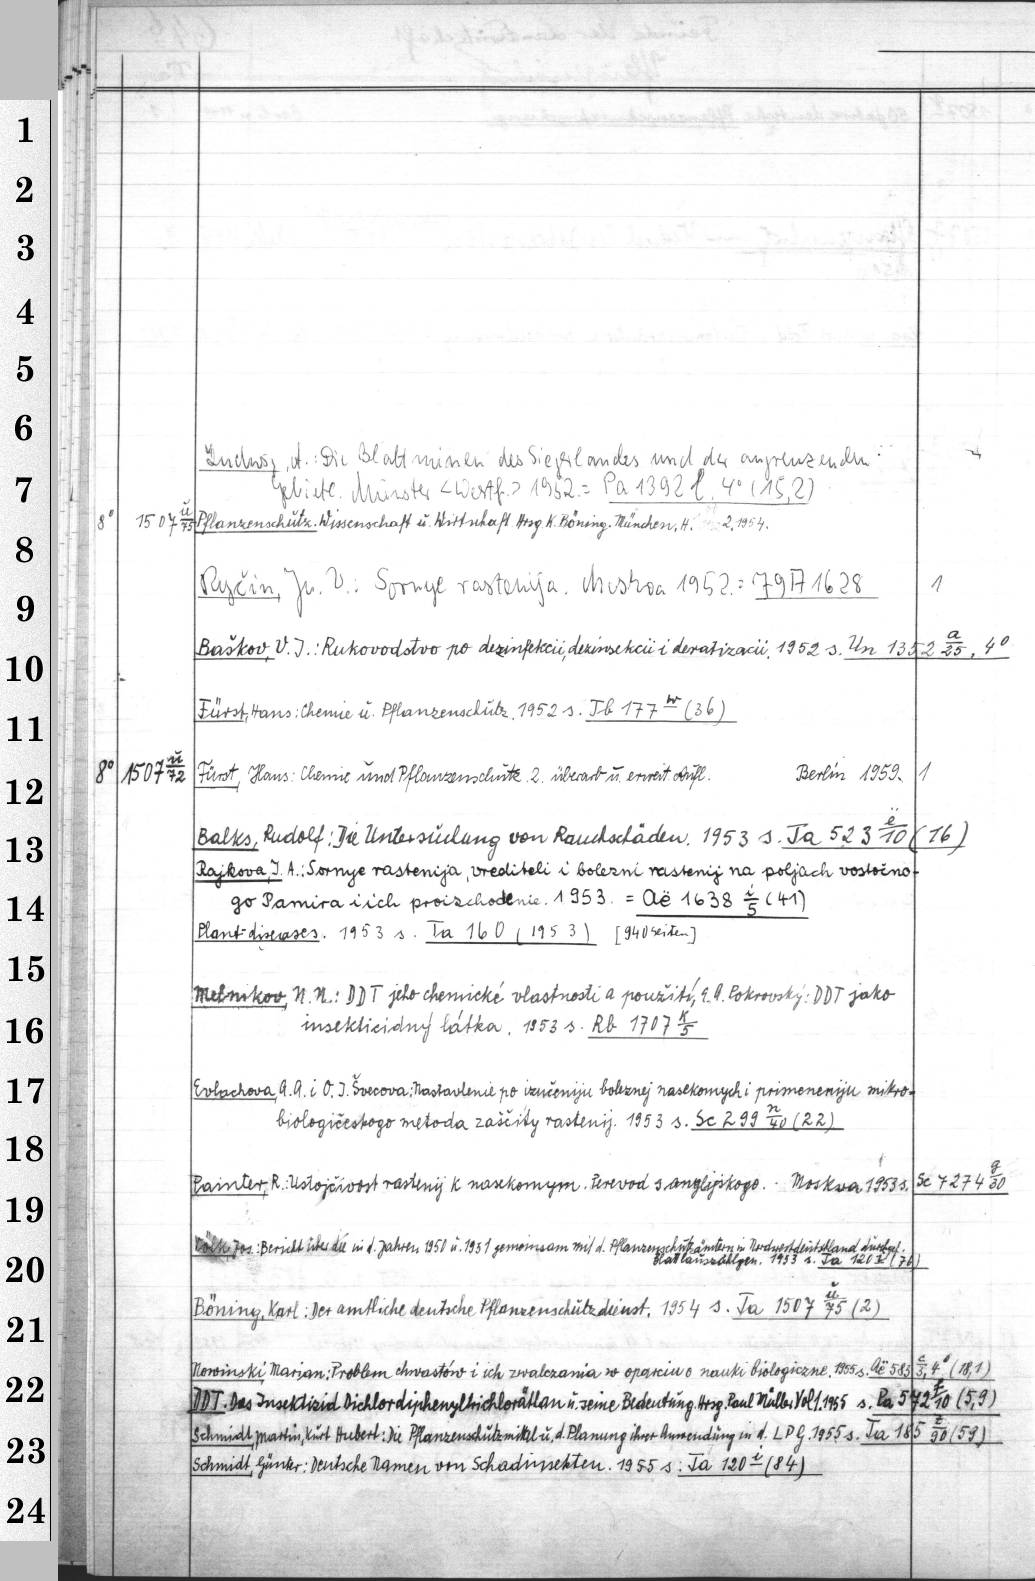 1
2
3
4
5
6
7
8
9
10
11
12
13
14
15
16
17
18
19
20
21
22
23
24
Ludwig, A.: Die Blattminen des Siegerlandes und der angrenzenden
Gebiete. Münster <Westf.> 1952.= Pa 1392 l, 4° (15,2)
8° 1507 ü/75 Pflanzenschutz. Wissenschaft u. Wirtschaft Hrsg K. Böning. München, H. 2, 1954.
Ryčin, Ju. V.: Sornye rastenija. Moskva 1952.= 79 A 1628 1
Baškov, V. J.: Rukovodstvo po dezinfekcii, dezinsekcii i deratizacii. 1952 s. Un 1352 a/25, 4°
Fürst, Hans: Chemie u. Pflanzenschutz. 1952 s. Tb 177 w (36)
8° 1507 ü/72 Fürst, Hans: Chemie und Pflanzenschutz. 2. überarb u. erweit Aufl. Berlin 1959. 1
Balks, Rudolf: Die Untersuchung von Rauchschäden. 1953 s. Ta 523 ë/10 (16)
Rajkova, I. A.: Sornye rastenija, vrediteli i bolezni rastenij na poljach vostočno-
go Pamira i ich proizchodenie. 1953. = Aë 1638 i/5 (41)
Plant-diseases. 1953 s. Ta 160 (1953) [940 Seiten]
Melnikov, N. N.: DDT jeho chemické vlastnosti a použití, E. A. Pokrovský: DDT jako
insekticidný látka. 1953 s. Rb 1707 k/5
Evlachova, A. A. i O. I. Švecova: Nastavlenie po izučeniju boleznej nasekomych i primeneniju mikro-
biologičeskogo metoda zaščity rastenij. 1953 s. Sc 299 n/40 (22)
Painter, R.: Ustojčivost rastenij k nasekomym. Perevod s anglijskogo. Moskva 1953 s. Sc 7274 g/30
Völk, Jos.: Bericht über die in d. Jahren 1950 u. 1951 gemeinsam mit d. Pflanzenschutzämtern in Nordwestdeutschland durchgef.
Blattlauszählgen. 1953 s. Ta 120 i (76)
Böning, Karl: Der amtliche deutsche Pflanzenschutzdienst. 1954 s. Ta 1507 ü/75 (2)
Nowinski, Marjan: Problem chwastów i ich zwalczania w oparciu o nauki biologiczne. 1955 s. Aë 585 c/3, 4° (18,1)
DDT. Das Insektizid Dichlordiphenyltrichloräthan u. seine Bedeutung. Hrsg. Paul Müller Vol 1. 1955 s. Pa 572 f/10 (5,9)
Schmidt, Martin, Kurt Hubert: Die Pflanzenschutzmittel u. d. Planung ihrer Anwendung in d. LPG. 1955 s. Ta 185 t/90 (59)
Schmidt, Günter: Deutsche Namen von Schadinsekten. 1955 s. Ta 120 i (84)